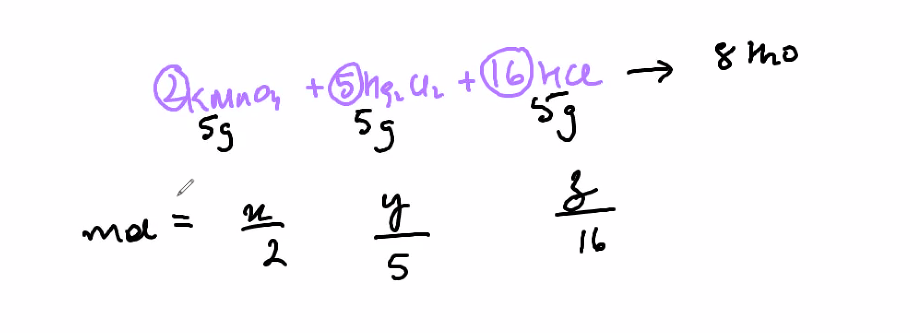 2KMnO4 + 5Hg2Cl2 + 16HCl → 8H2O
5g 5g 5g
mol = x/2 y/5 z/16